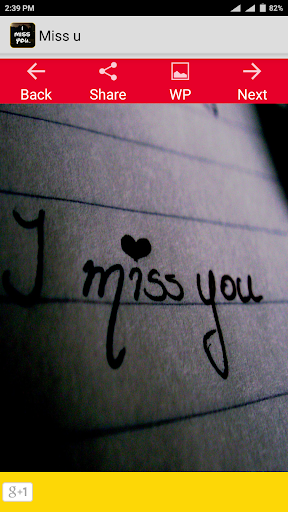 2:39 PM
82%
I MISS YOU.
Miss u
Back Share WP Next
I miss you
g+1